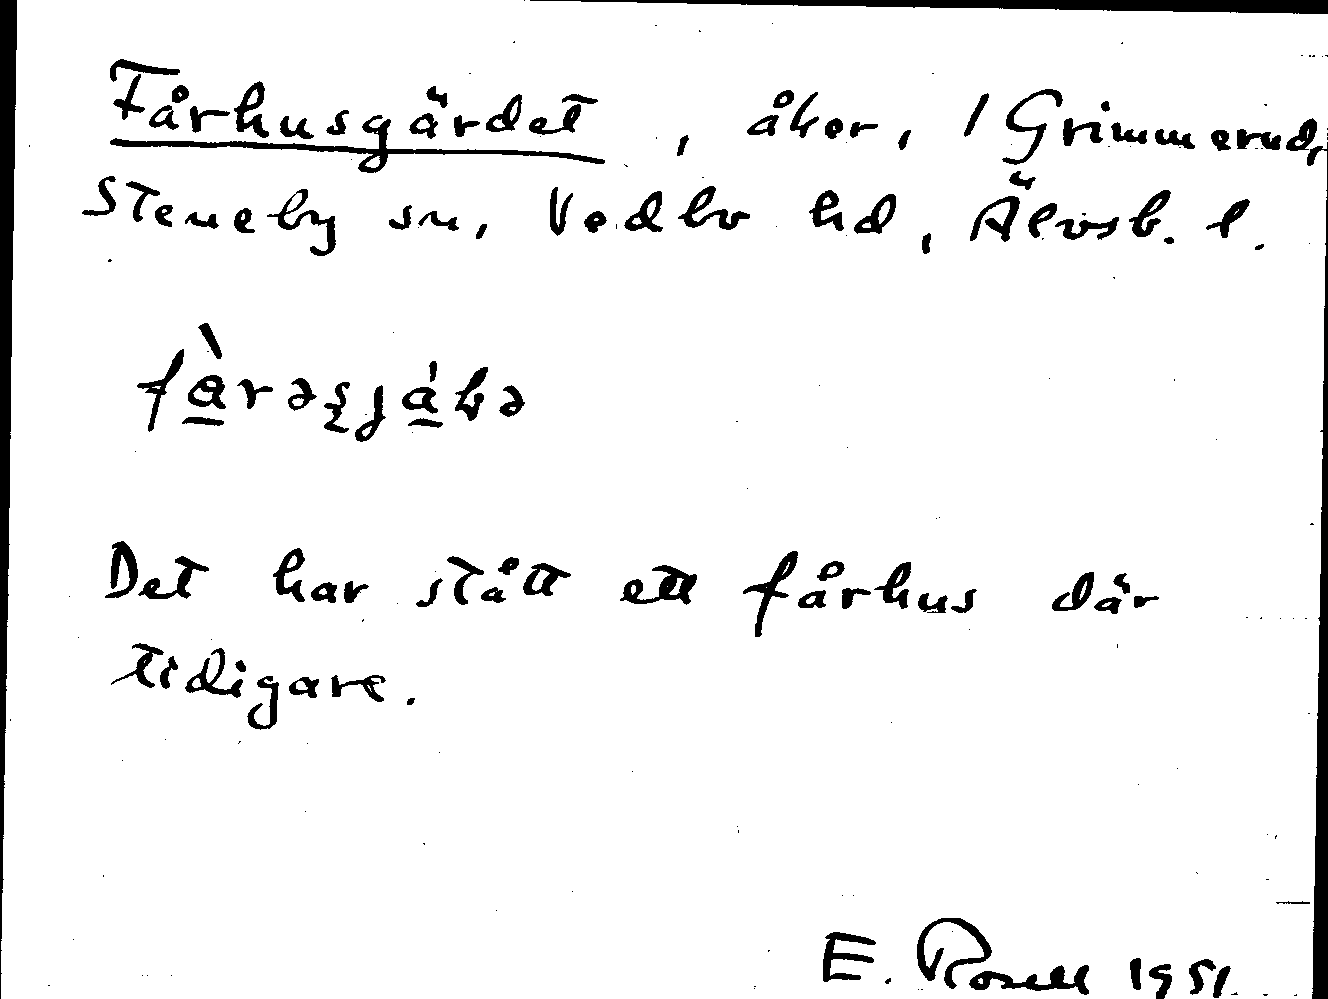 Fårhusgärdet, åker, 1 Grimmerud,
Steneby sn, Vedbo hd, Älvsb. l.
Det har stått ett fårhus där
tidigare.
E. Rosell 1951